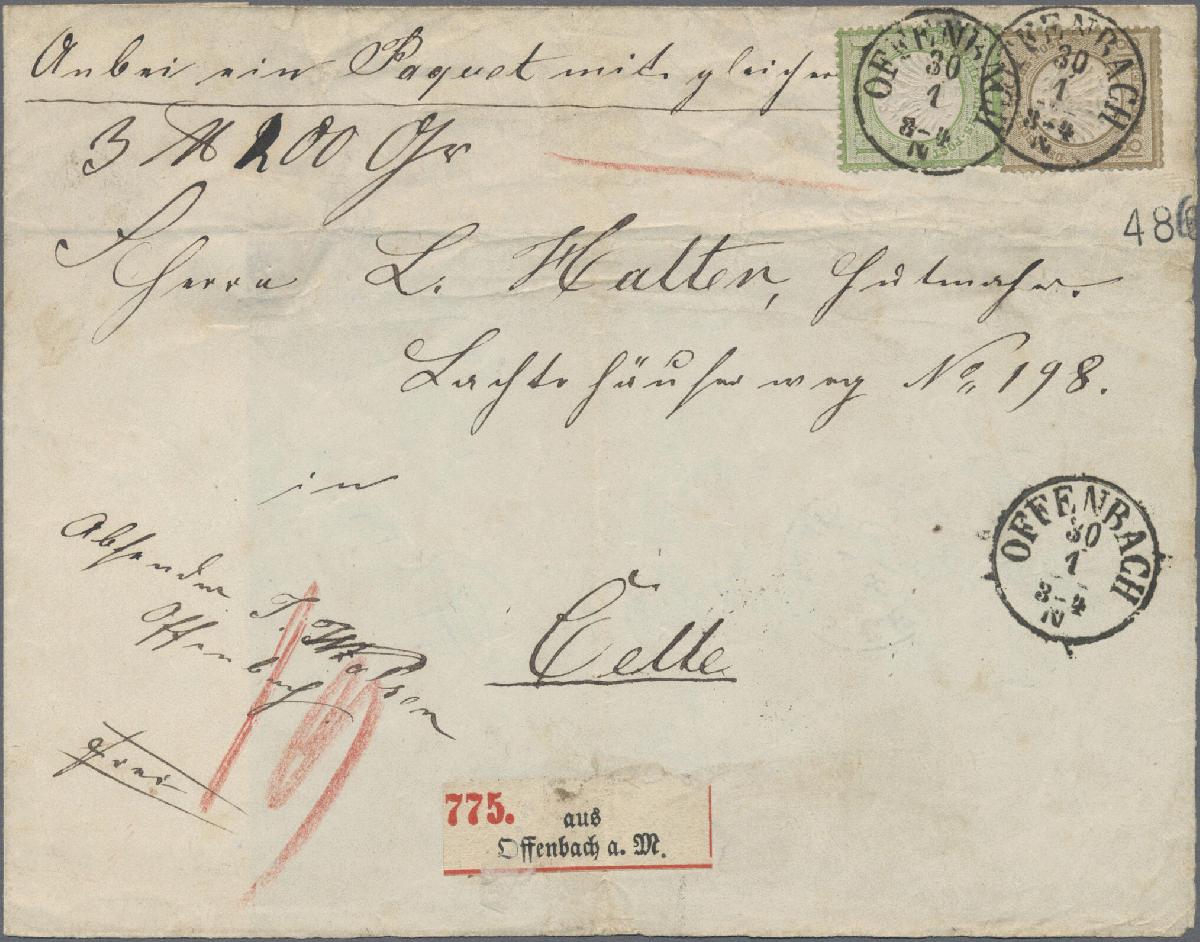 Anbei ein Paquet mit gleicher
3 ℔ 200 Gr
Herrn L. Halter, Hutmachr.
Lachtehäuserweg No. 198.
in
Celle
Absender
Offenbach
Frei
19
OFFENBACH
30
1
3-4
N
OFFENBACH
30
1
3-4
N
48
OFFENBACH
30
1
3-4
N
775.
aus
Offenbach a. M.